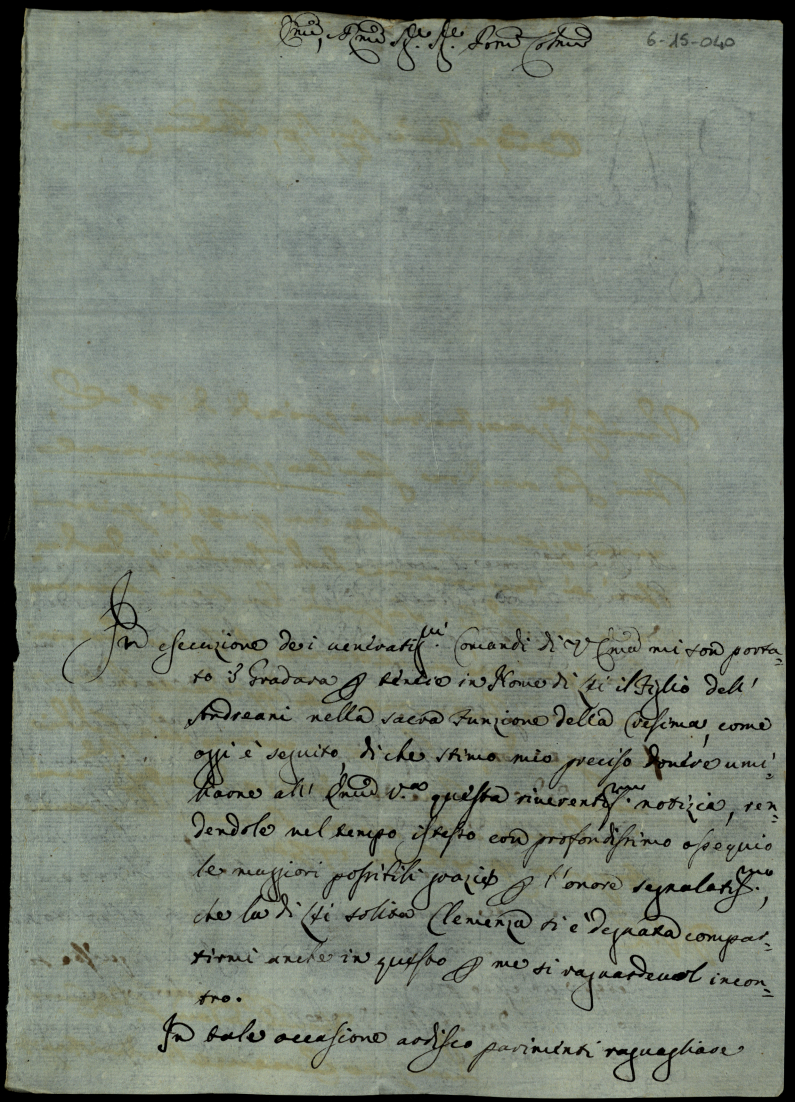 Emõ, e Rmõ Sig.e Sig.e Prone Colmõ
6-15-040
In esecuzione dei veneratiss.i Comandi di V. Emã mi son porta-
to à Gradara p tenere in Nome di Lei il Figlio dell'
Andreani nella sacra Funzione della Cresima, come
oggi è seguito, di che stimo mio preciso dovere umi-
liarne all' Emã V.a questa riverentiss.ma notizia, ren-
dendole nel tempo istesso con profondissimo ossequio
le maggiori possibili grazie p l'onore segnalatiss.mo,
che la di Lei solita Clemenza si è degnata compar-
tirmi anche in questo p me sì raguardevol incon-
tro.
In tale occasione ardisco parimenti raguagliare